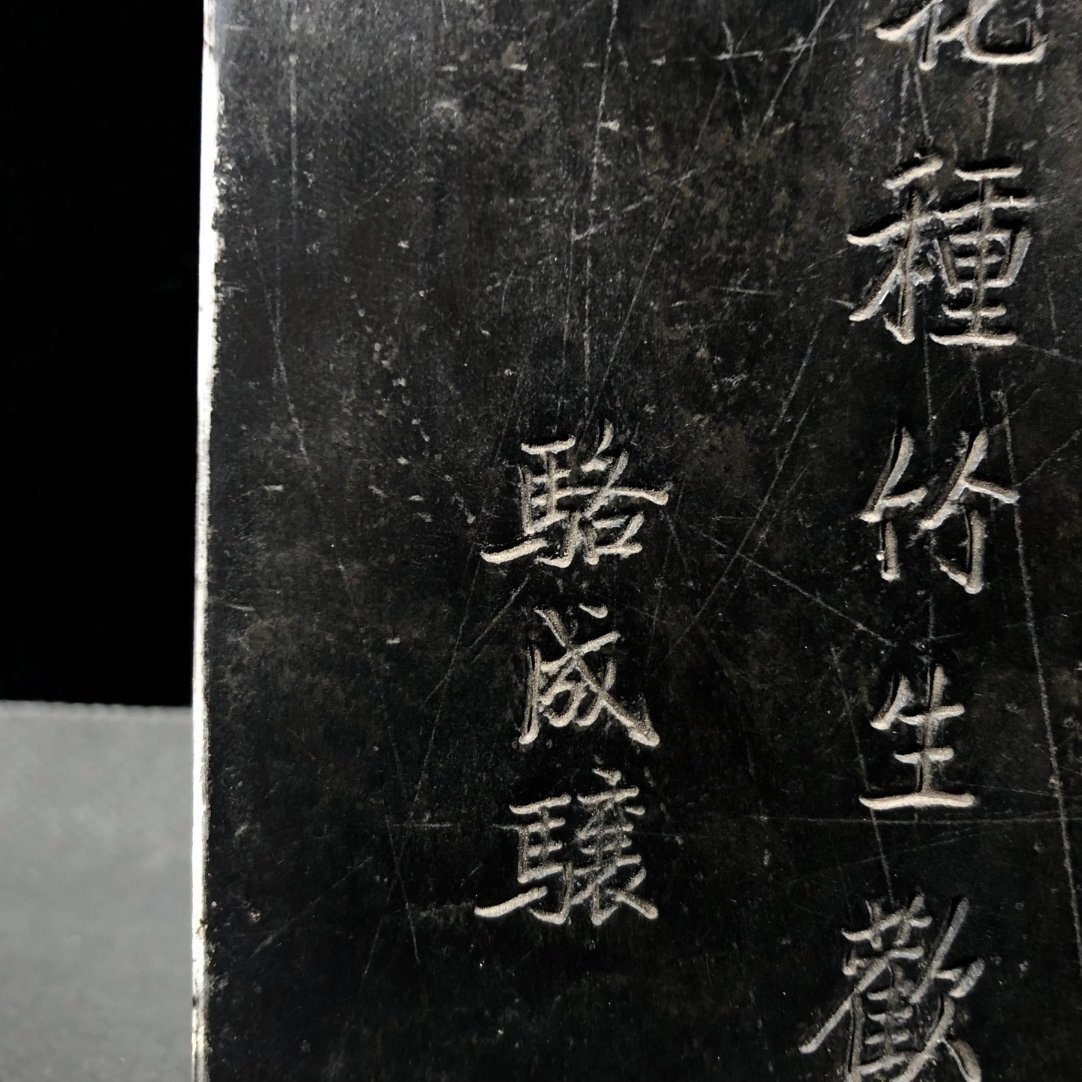 花種竹生歡
駱成驤